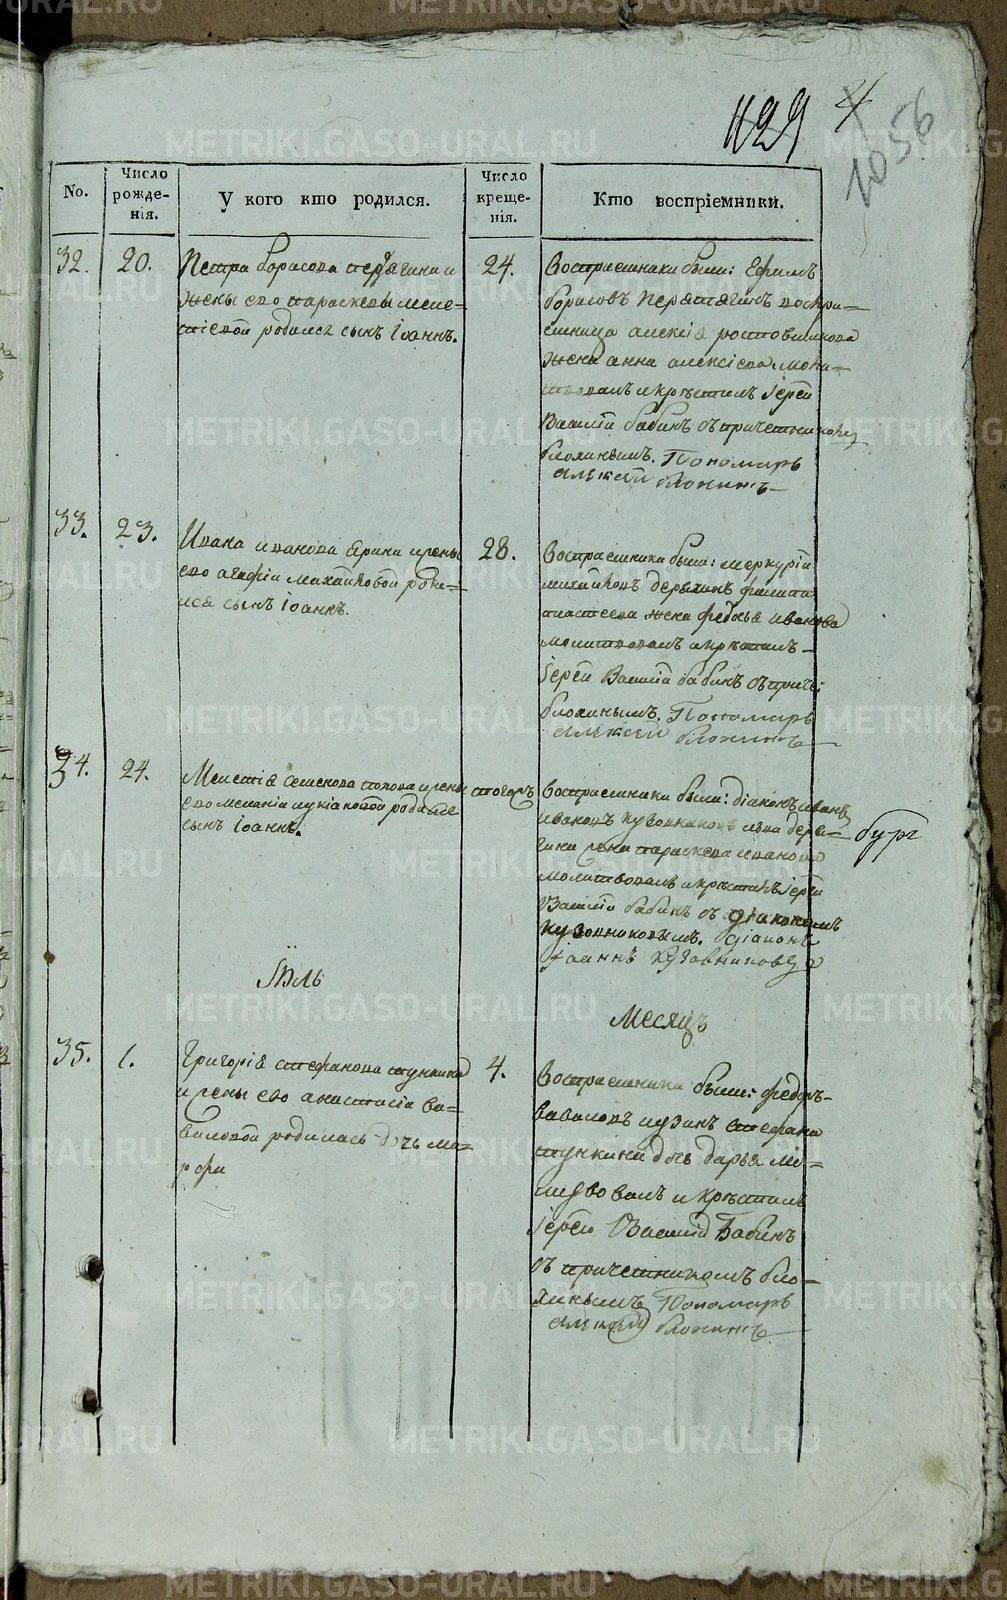 1129 4
1056
No.
Число рожденія.
У кого кто родился.
Число крещенія.
Кто воспріемники.
32.
20.
Петра борисова перетягина и
жены его параскевы меле-
тіевой родился сынъ іоаннъ.
24.
Воспріемники были: Ефимъ
борисовъ перетягинъ воспрі-
емница алексія ростовщикова
жена анна алексіева моли-
твовалъ и крѣстилъ іерей
Василій бабинъ съ причетником
блохинымъ. Пономарь
алексей блохинъ
33.
23.
Ивана иванова ерина и жены
его агафіи михайловой роди-
лся сынъ іоаннъ.
28.
Воспріемники были: меркурій
михайловъ филипа
жена федосья иванова
молитвовалъ и крѣстилъ
іерей Василій бабинъ съ приче:
блохинымъ. Пономарь
алексей блохинъ
34.
24.
Мелетія семенова попова и жены
его меланіи лукіановой родился
сынъ іоаннъ.
тогожъ
Воспріемники были: діаконъ иванъ
ивановъ кузовниковъ
жена параскева иванова
молитвовалъ и крѣстилъ іерей
Василій бабинъ съ діакономъ
кузовниковымъ. діаконъ
іоаннъ кузовниковъ
бург
іюль
Месяцъ
35.
1.
Григорія стефанова шункина
и жены его анастасіи ва-
виловой родилась дочь ма-
рфа
4.
Воспріемники были: федоръ
вавиловъ кузинъ стефана
шункина дочь дарья мо-
литвовалъ и крѣстилъ
іерей Василій Бабинъ
съ причетникомъ бло-
хинымъ Пономарь
алексей блохинъ
METRIKI.GASO-URAL.RU